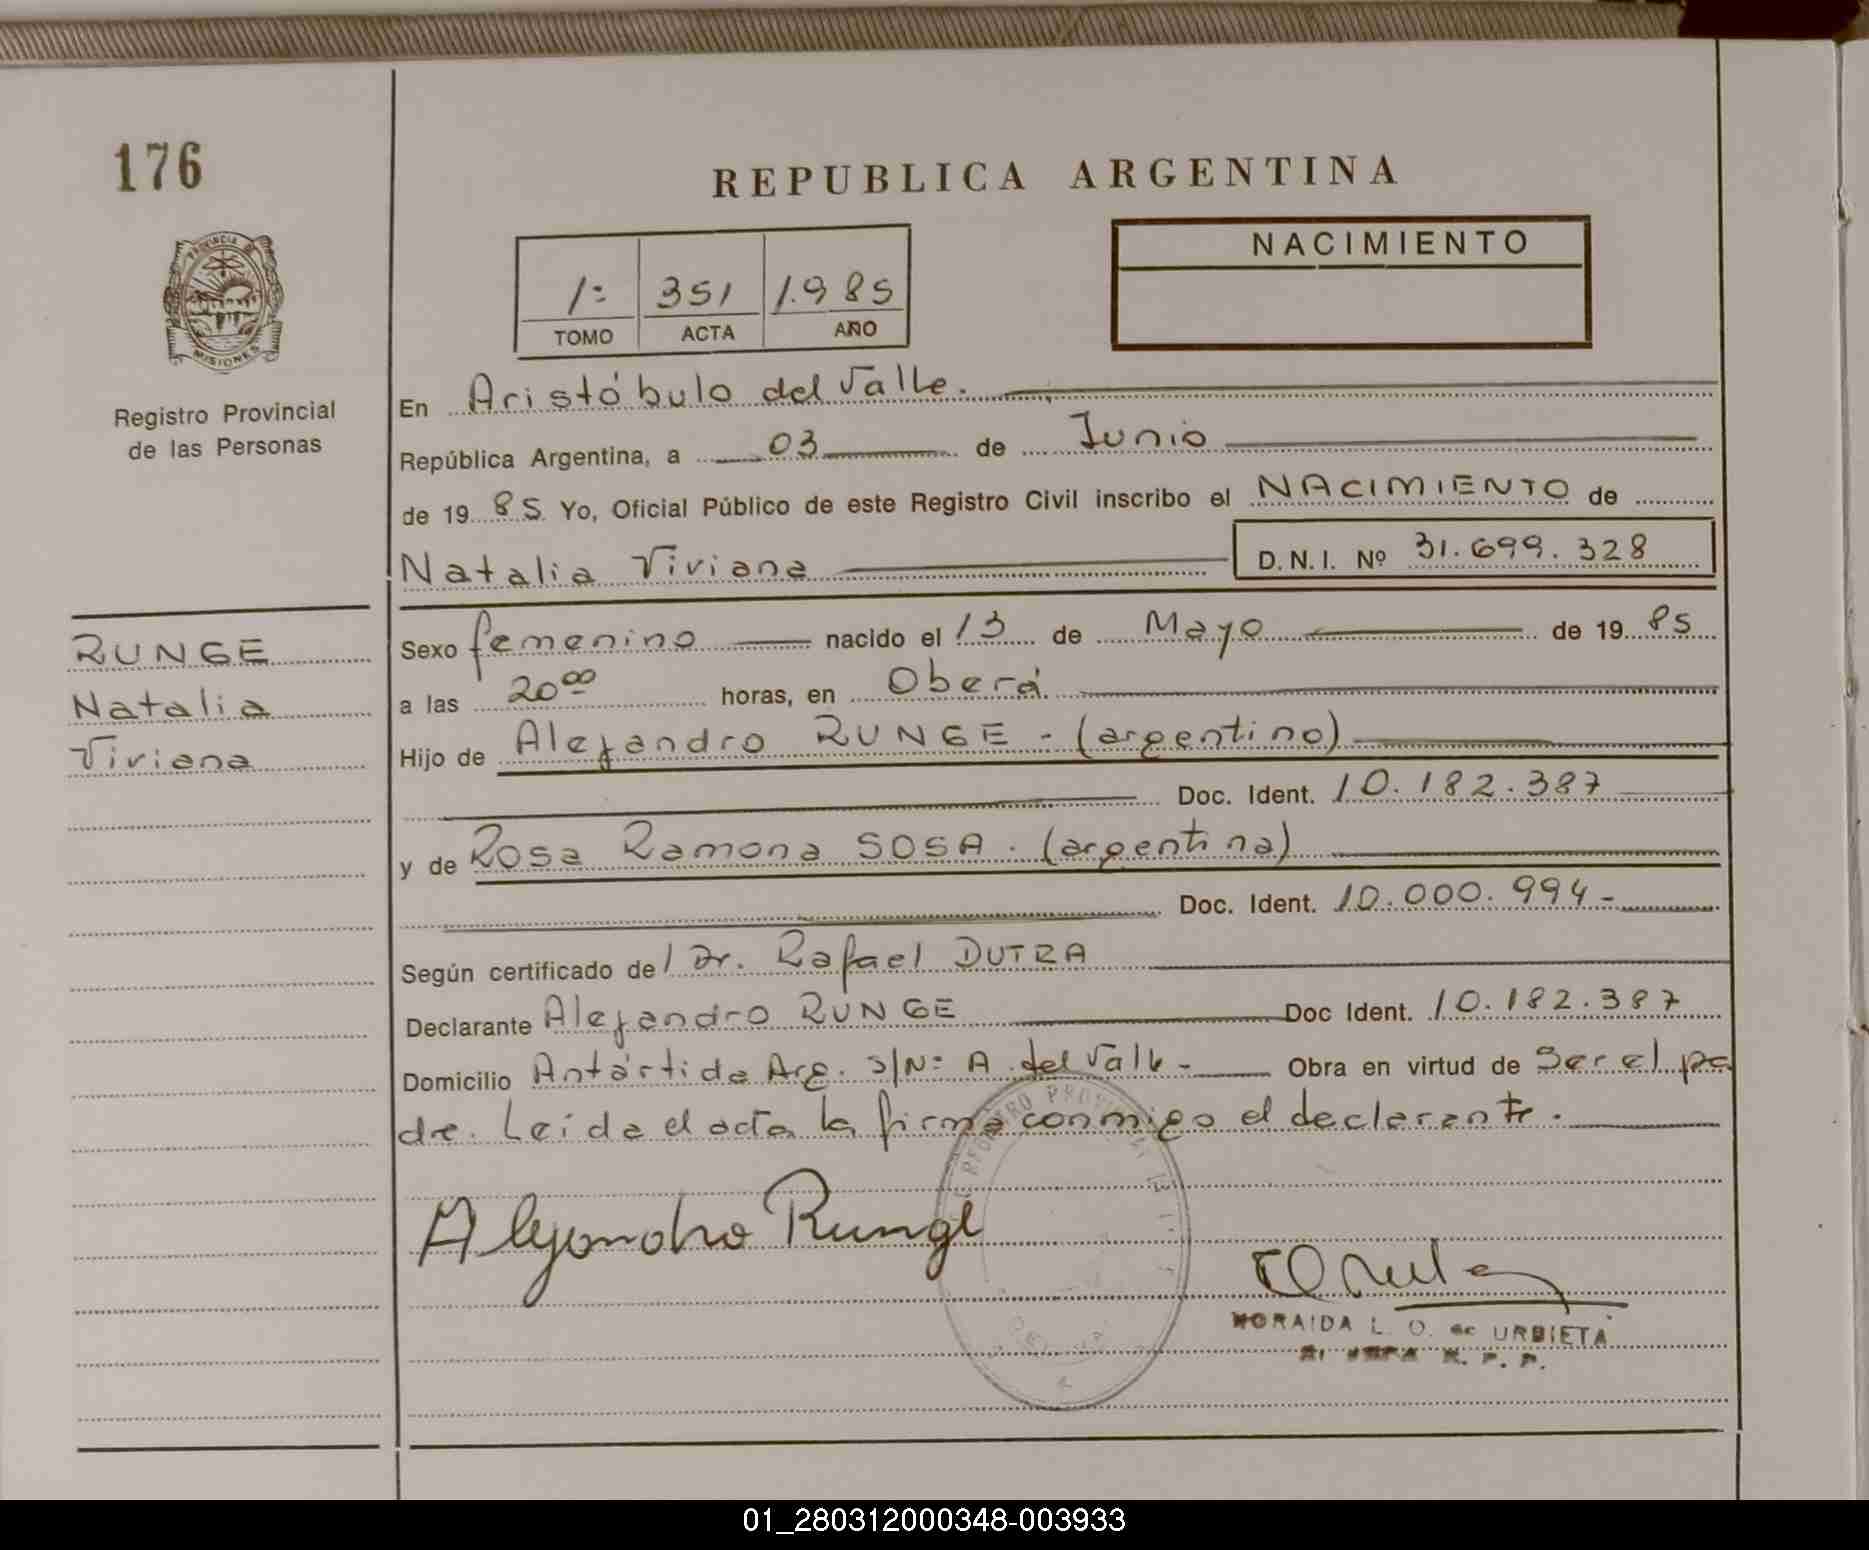 176
REPUBLICA ARGENTINA
PROVINCIA DE
MISIONES
Registro Provincial
de las Personas
1º 351 1.985
TOMO ACTA AÑO
NACIMIENTO
En Aristóbulo del Valle.
República Argentina, a 03 de Junio
de 19 85. Yo, Oficial Público de este Registro Civil inscribo el NACIMIENTO de
Natalia Viviana D.N.I. Nº 31.699.328
RUNGE
Natalia
Viviana
Sexo femenino nacido el 13 de Mayo de 19 85
a las 20⁰⁰ horas, en Oberá.
Hijo de Alejandro RUNGE - (argentino)
Doc. Ident. 10.182.387
y de Rosa Ramona SOSA. (argentina)
Doc. Ident. 10.000.994-
Según certificado de / Dr. Rafael DUTRA
Declarante Alejandro RUNGE Doc Ident. 10.182.387
Domicilio Antártida Arg. S/Nº A. del Valle - Obra en virtud de Ser el pa
dre. Leída el acta la firma conmigo el declarante.
Alejandro Runge
REGISTRO PROVINCIAL
L. O. de URBIETA
R. P. P.
01_280312000348-003933